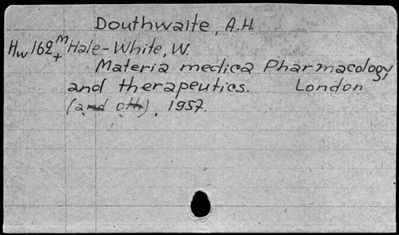 Douthwaite, A.H.
Hw 162 M + Hale-White, W.
Materia medica Pharmacology
and therapeutics. London
(and oth), 1957.